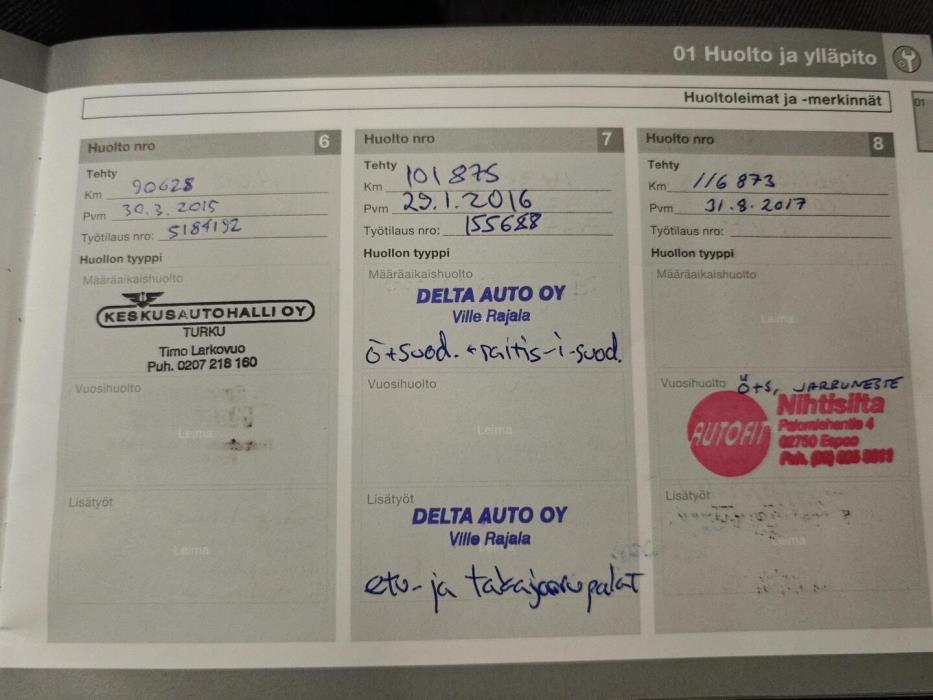 01 Huolto ja ylläpito
01
Huoltoleimat ja -merkinnät
Huolto nro 6
Tehty
Km 90628
Pvm 30.3.2015
Työtilaus nro: 5184192
Huollon tyyppi
Määräaikaishuolto
KESKUSAUTOHALLI OY
TURKU
Timo Larkovuo
Puh. 0207 218 160
Vuosihuolto
Leima
Lisätyöt
Leima
Huolto nro 7
Tehty
Km 101875
Pvm 29.1.2016
Työtilaus nro: 155688
Huollon tyyppi
Määräaikaishuolto
DELTA AUTO OY
Ville Rajala
ö+suod. + raitis-i-suod.
Vuosihuolto
Leima
Lisätyöt
DELTA AUTO OY
Ville Rajala
etu- ja takajarrupalat
Huolto nro 8
Tehty
Km 116 873
Pvm 31.8.2017
Työtilaus nro:
Huollon tyyppi
Määräaikaishuolto
Leima
Vuosihuolto Ö+S, JARRUNESTE
AUTOFIT
Nihtisilta
Palomiehentie 4
02750 Espoo
Lisätyöt
Leima